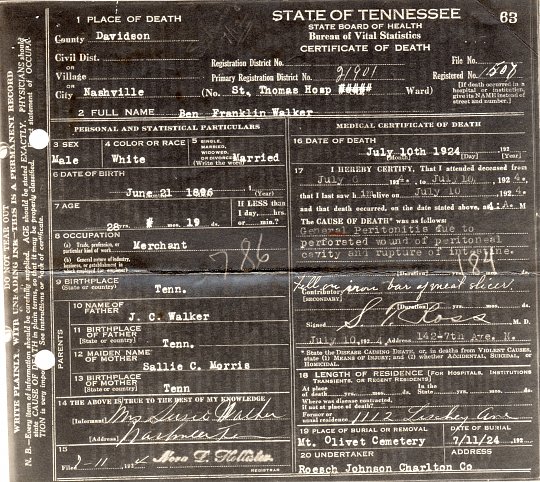 STATE OF TENNESSEE 63
STATE BOARD OF HEALTH
Bureau of Vital Statistics
CERTIFICATE OF DEATH
1 PLACE OF DEATH
County Davidson
Civil Dist.
Village
City Nashville
Registration District No. File No.
Primary Registration District No. 21901 Registered No. 1507
(No. St. Thomas Hosp Ward)
(If death occurred in a hospital or institution, give its NAME instead of street and number.)
2 FULL NAME Ben Franklin Walker
PERSONAL AND STATISTICAL PARTICULARS
3 SEX Male
4 COLOR OR RACE White
5 SINGLE, MARRIED, WIDOWED, OR DIVORCED (Write the word) Married
6 DATE OF BIRTH
June 21 1896 (Year)
7 AGE
28 yrs. mos. 19 ds.
If LESS than 1 day, hrs. or min.?
8 OCCUPATION
(a) Trade, profession, or particular kind of work
Merchant
(b) General nature of industry, business, or establishment in which employed (or employer)
786
9 BIRTHPLACE
(State or country) Tenn.
PARENTS
10 NAME OF FATHER J. C. Walker
11 BIRTHPLACE OF FATHER
(State or country) Tenn.
12 MAIDEN NAME OF MOTHER Sallie C. Morris
13 BIRTHPLACE OF MOTHER
(State or country) Tenn
14 THE ABOVE IS TRUE TO THE BEST OF MY KNOWLEDGE
(Informant) Mrs Susie Walker
(Address)
15
Filed 192 4 Nora D. Hollister
REGISTRAR
MEDICAL CERTIFICATE OF DEATH
16 DATE OF DEATH
July 10th 1924 192
(Month) (Day) (Year)
17 I HEREBY CERTIFY, That I attended deceased from
July 192 4, to July 10 192 4.
that I last saw him alive on July 10 192 4.
and that death occurred, on the date stated above, at M
The CAUSE OF DEATH* was as follows:
General Peritonitis due to
perforated wound of peritoneal
cavity and rupture of intestine.
184
(Duration) yrs. mos. ds.
Contributory Fell on iron bar of meat slicer.
(SECONDARY)
(Duration) yrs. mos. ds.
Signed Ross M. D.
July 10, 192 4 Address 142-7th Ave. N.
* State the DISEASE CAUSING DEATH, or, in deaths from VIOLENT CAUSES, state (1) MEANS OF INJURY; and (2) whether ACCIDENTAL, SUICIDAL, or HOMICIDAL.
18 LENGTH OF RESIDENCE (FOR HOSPITALS, INSTITUTIONS TRANSIENTS, OR RECENT RESIDENTS)
At place of death yrs. mos. ds. State yrs. mos. ds.
Where was disease contracted, if not at place of death?
Former or usual residence 1112 Ave
19 PLACE OF BURIAL OR REMOVAL DATE OF BURIAL
Mt. Olivet Cemetery 7/11/24 192
20 UNDERTAKER ADDRESS
Roesch Johnson Charlton Co